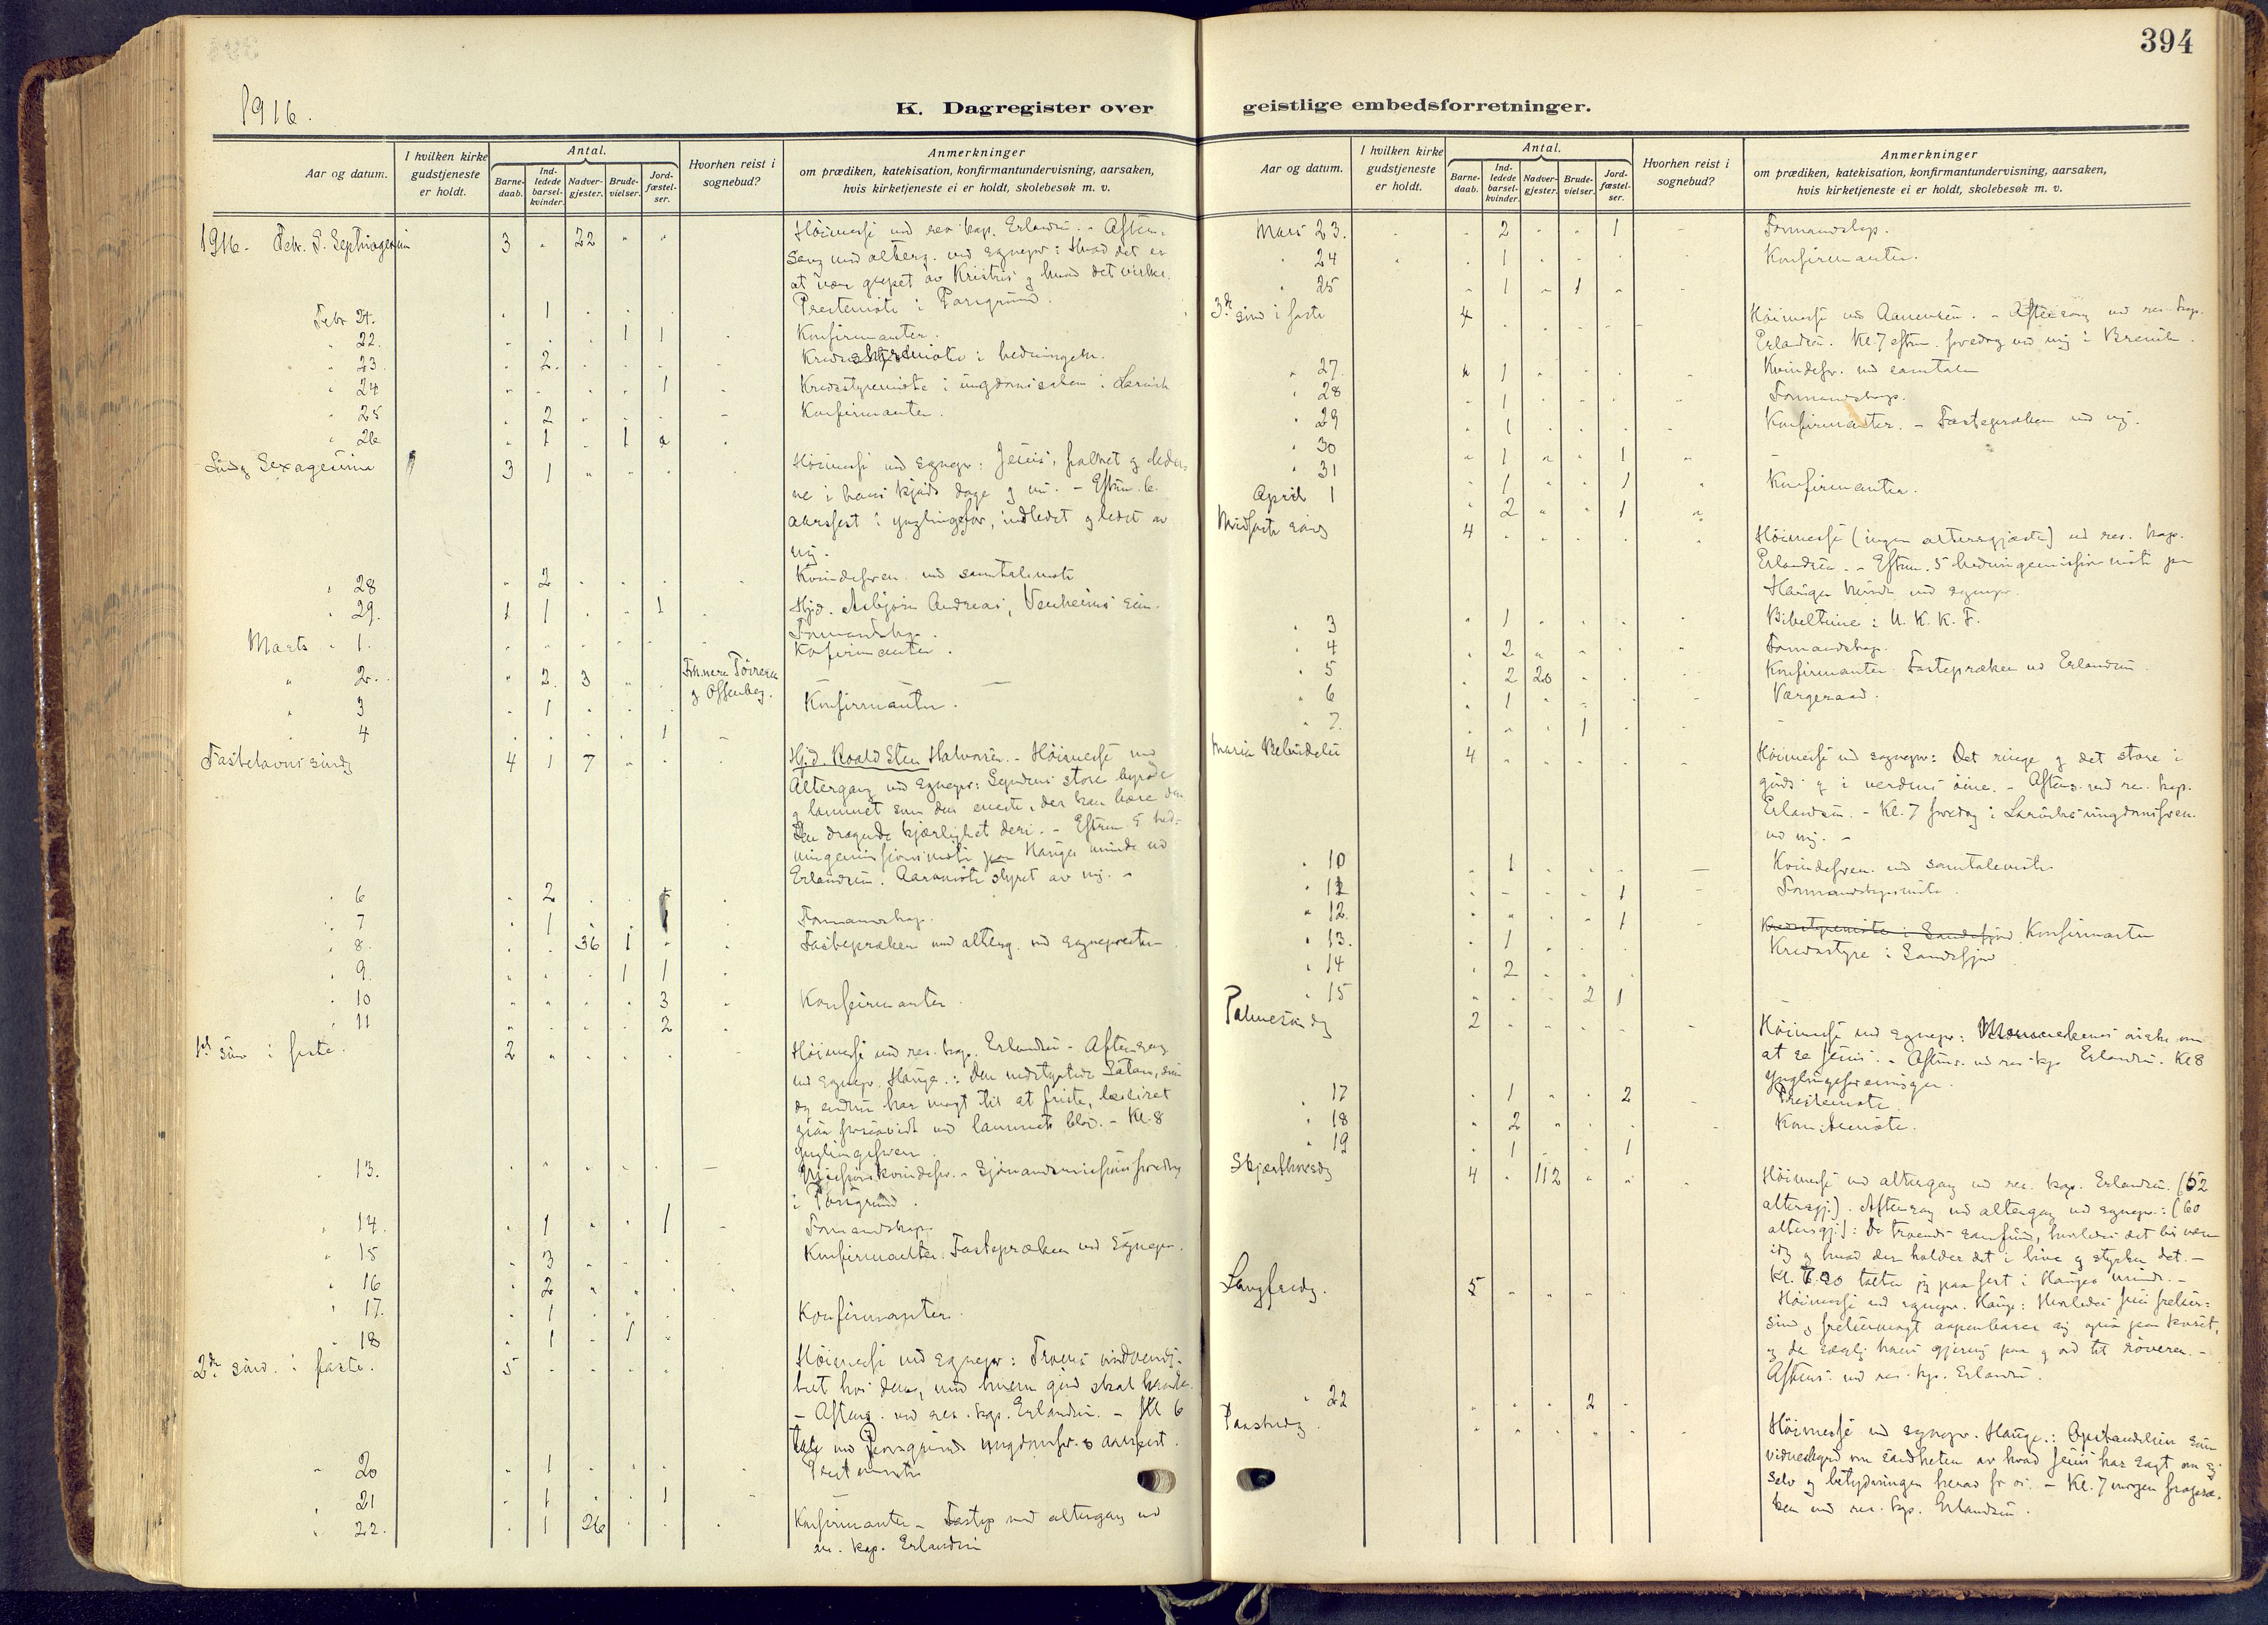 394
1916.
K. Dagregister over
geistlige embedsforretninger.
Aar og datum.
I hvilken kirke gudstjeneste er holdt.
Antal.
Barnedaab.
Indledede barselkvinder.
Nadvergjester.
Brudevielser.
Jordfæstelser.
Hvorhen reist i sognebud?
Anmerkninger
om prædiken, katekisation, konfirmantundervisning, aarsaken,
hvis kirketjeneste ei er holdt, skolebesøk m. v.
1916. Febr. S. Septuagesima 3 " 22 " " Høimesse ved res. kap. Erlandsen. - Aften-
sang med alterg. ved sognepr: Hvad det er
at være grepet av Kristus og hvad det virker.
Febr 21. " 1 " " " Prestemøte i Porsgrund.
" 22. " " " 1 1 Konfirmanter.
" 23. " 2. " " " Kredsstyremøte i hedningem.
" 24 " " " " 1 Kredsstyremøte i ungdomssaken i Larvik
" 25 " 2 " " " Konfirmanter.
" 26 " 1 " 1
Søndg Sexagesima 3 1 " " " Høimesse ved sognepr: Jesus, folket og leder-
ne i hans kjøds dage og nu. - Eftm. 6
aarsfest i ynglingefor, indledet og ledet av
mig.
" 28 " 2 " " " Kvindeforen. med samtalemøte
" 29. 1 1 " " 1 Hjd. Asbjørn Andreas,
Formandskap.
Marts 1. " " " " " Konfirmanter.
" 2. " 2. 3 " "
" 3 " 1 " " " Konfirmanter.
" 4 " " " " 1
Fastelavns søndg 4 1 7 " " Hjd. Roald Sten Halvorsen. - Høimesse med
Altergang ved sognepr: Syndens store byrde
og lammet som den eneste, der kan bære den
Den dragende kjærlighet deri. - Eftm. 5 hed-
ningemissionsmøte paa Hauges minde ved
Erlandsen. Aarsmøte styret av mig. -
" 6 " 2 " "
" 7 " 1 " " Formandskap.
" 8. " " 36 1 " Fastepræken med alterg. ved sognepresten
" 9. " " " 1 1
" 10 " " " " 3 Konfirmanter.
" 11 " " " " 2
1st søn i faste. 2 " " " " Høimesse ved res. kap. Erlandsen - Aftensang
ved sognepr. Hauge.: Den nedstyrtede Satan, som
dog endnu har magt til at friste, beseiret
ogsaa forsaavidt ved lammets blod. - Kl. 8
Ynglingeforen.
" 13. " " " " " Missionskvindefor. - Sjømandsmissionsforedrag
i Porsgrund.
" 14. " 1 " " 1 Formandskap.
" 15 " 3 " " " Konfirmanter. Fastepræken ved Sognepr.
" 16 " 2 " " "
" 17. " 1 " " " Konfirmanter.
" 18 " 1 " 1 "
2den sønd. i faste. 5 " " " " Høimesse ved sognepr: Troens nødvendig-
het hos dem, med hvem gud skal handle.
- Aftens. ved res. kap. Erlandsen. - Kl 6
tale ved Porsgrunds ungdomsfor.s aarsfest.
" 20 " 1 " " " Prestemøte
" 21 " 1 " " 1
" 22. " 1 26 " " Konfirmanter - Fastep. med altergang ved
res. kap. Erlandsen
Mars 23. " 2 " " 1 Formandskap.
" 24 " 1 " " " Konfirmanter.
" 25 " 1 " 1 "
3de sønd i faste 4 " " " " Høimesse ved - Aftensang ved res. kap.
Erlandsen. Kl. 7 eftm. foredrag ved mig i Brevik.
" 27. " 1 " " " Kvindefor. med samtale
" 28 " 1 " " " Formandskap.
" 29 " 1 " " " Konfirmanter. - Fastepræken ved mig.
" 30 " 1 " " 1
" 31 " 1 " " 1 Konfirmanter.
April 1 " 2 " " 1
Midfaste søndg 4 " " " " Høimesse (ingen altersgjæster) ved res. kap.
Erlandsen. - Eftm. 5 hedningemissionsmøte paa
Hauges minde ved sognepr.
" 3 " 1 " " " Bibeltime i U. K. K. F.
" 4 " 2 " " " Formandskap.
" 5 " 2 20 " " Konfirmanter Fastepræken ved Erlandsen
" 6 " 1 " " " Værgeraad.
" 7. " " " 1 "
Maria Bebudelse 4 " " " " Høimesse ved sognepr: Det ringe og det store i
guds og i verdens øine. - Aftens. ved res. kap.
Erlandsen. - Kl. 7 foredrag i Larviks ungdomsforen.
ved mig. -
" 10 " 1 " " " Kvindeforen. med samtalemøte
" 11 " " " " 1 Formandskapsmøte.
" 12. " " " " 1 Kredsstyremøte i Sandefjord Konfirmanter
" 13. " 1 " " " Kredsstyre i Sandefjord
" 14 " 2 " " "
" 15 " " " 2 1
Palmesøndg 2 " " " " Høimesse ved sognepr: Menneskenes ønske om
at se Jesus. - Aftens. ved res. kap. Erlandsen. Kl 8
Ynglingeforeningen.
" 17 " 1 " " 2 Prestemøte
" 18 " 2 " " " Komitemøte.
" 19 " 1 " " 1
Skjærthorsdg 4 " 112 " " Høimesse med altergang ved res. kap. Erlandsen. (52
altersgj.). Aftensang med altergang ved sognepr.: (60
altersgj.): De troendes samfund, hvorledes det bør være
idag og hvad der holder det i live og styrker det. -
Kl. 7.20 talte jeg paa fest i Hauges minde. -
Langfredg. 5 " " " " Høimesse ved sognepr. Hauge: Hvorledes Jesu frelser-
sind og frelsermagt aapenbarer sig ogsaa paa korset,
og da særlig hans gjerning paa og ord til røveren. -
Aftens. ved res. kap. Erlandsen.
" 22 " " " 2 "
Paaskedg. " " " " " Høimesse ved sognepr. Hauge.: Opstandelsen som
vidnesbyrd om sandheten av hvad Jesus har sagt om sig
selv og betydningen herav for os. - Kl. 7 morgen frapræ-
ken ved res. kap. Erlandsen.